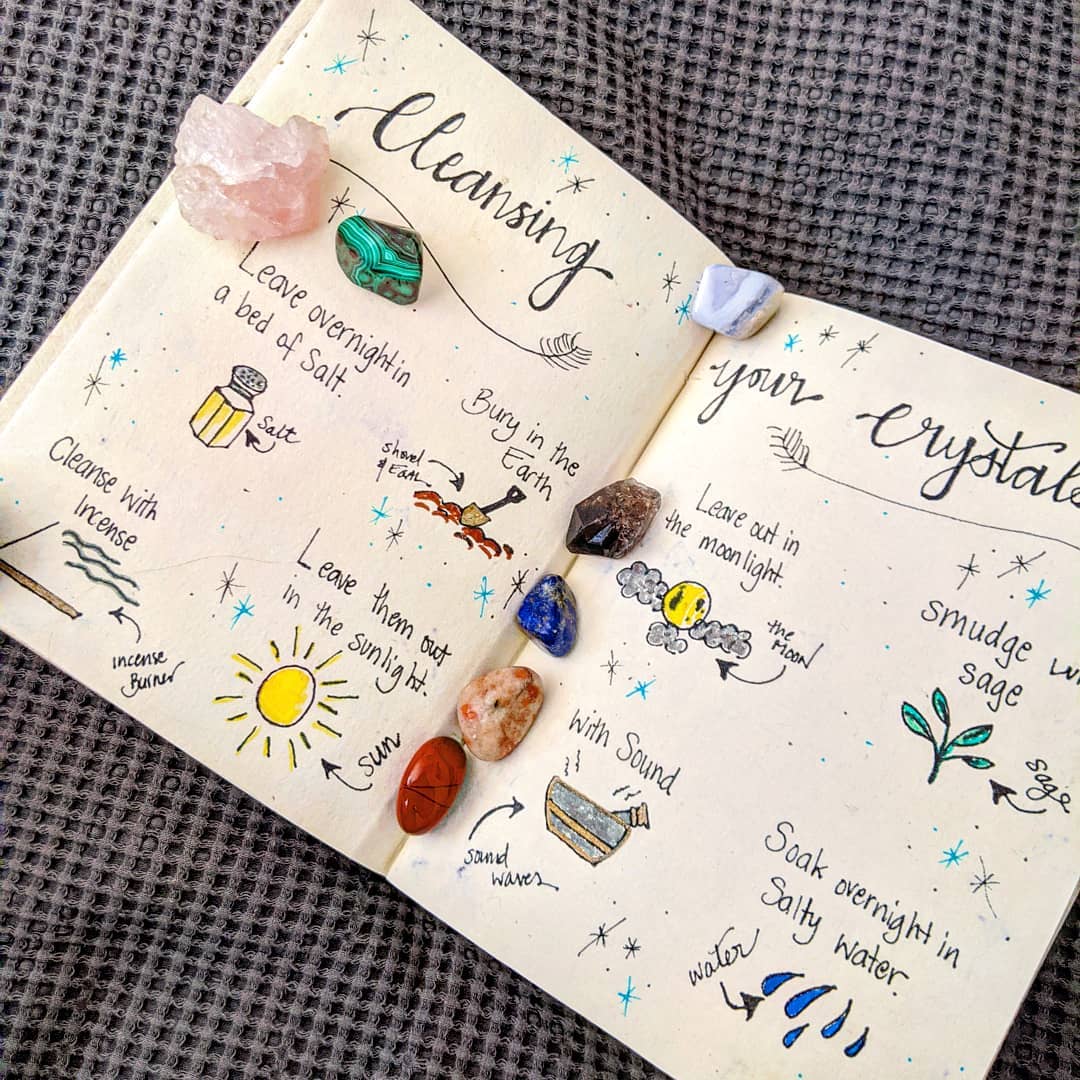 Cleansing
Leave overnight in
a bed of Salt.
Salt
Bury in the
Earth
shovel
&
Cleanse with
Incense
incense
Burner
Leave them out
in the sunlight.
sun
your crystals
Leave out in
the moonlight.
the
MOON
smudge
sage
sage
with Sound
sound
waves
Soak overnight in
Salty water.
water